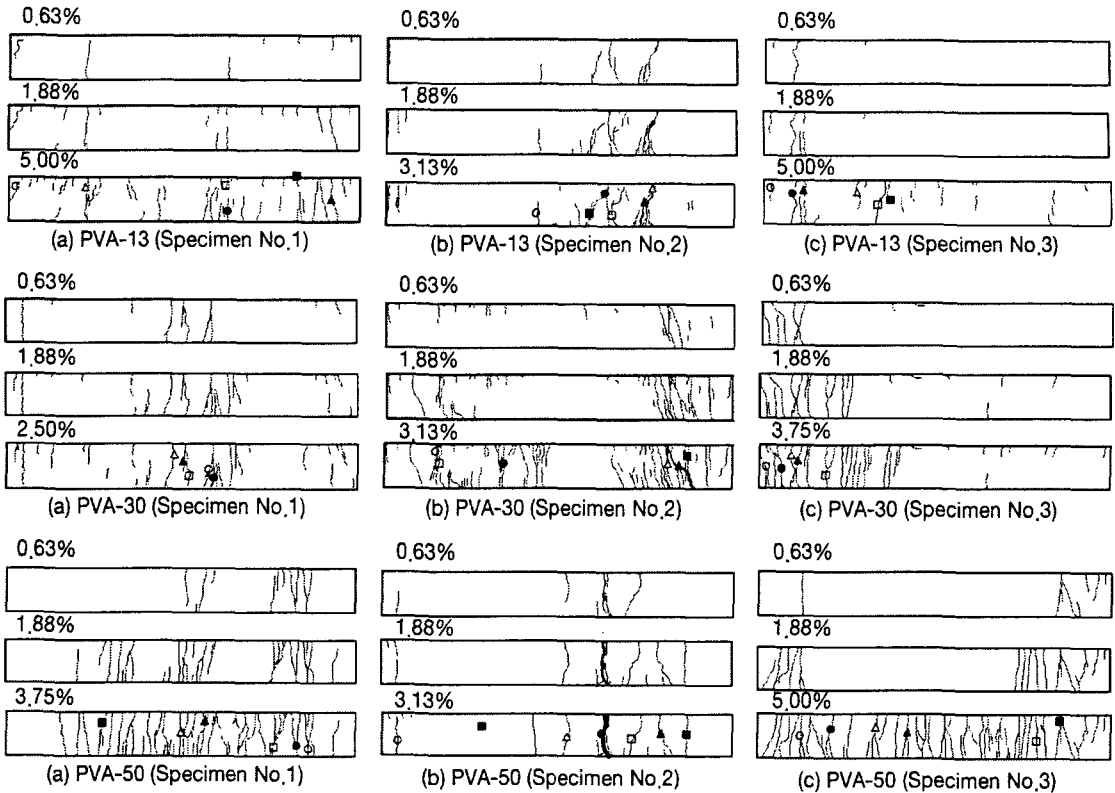 0.63%
1.88%
5.00%
(a) PVA-13 (Specimen No.1)
0.63%
1.88%
3.13%
(b) PVA-13 (Specimen No.2)
0.63%
1.88%
5.00%
(c) PVA-13 (Specimen No.3)
0.63%
1.88%
2.50%
(a) PVA-30 (Specimen No.1)
0.63%
1.88%
3.13%
(b) PVA-30 (Specimen No.2)
0.63%
1.88%
3.75%
(c) PVA-30 (Specimen No.3)
0.63%
1.88%
3.75%
(a) PVA-50 (Specimen No.1)
0.63%
1.88%
3.13%
(b) PVA-50 (Specimen No.2)
0.63%
1.88%
5.00%
(c) PVA-50 (Specimen No.3)